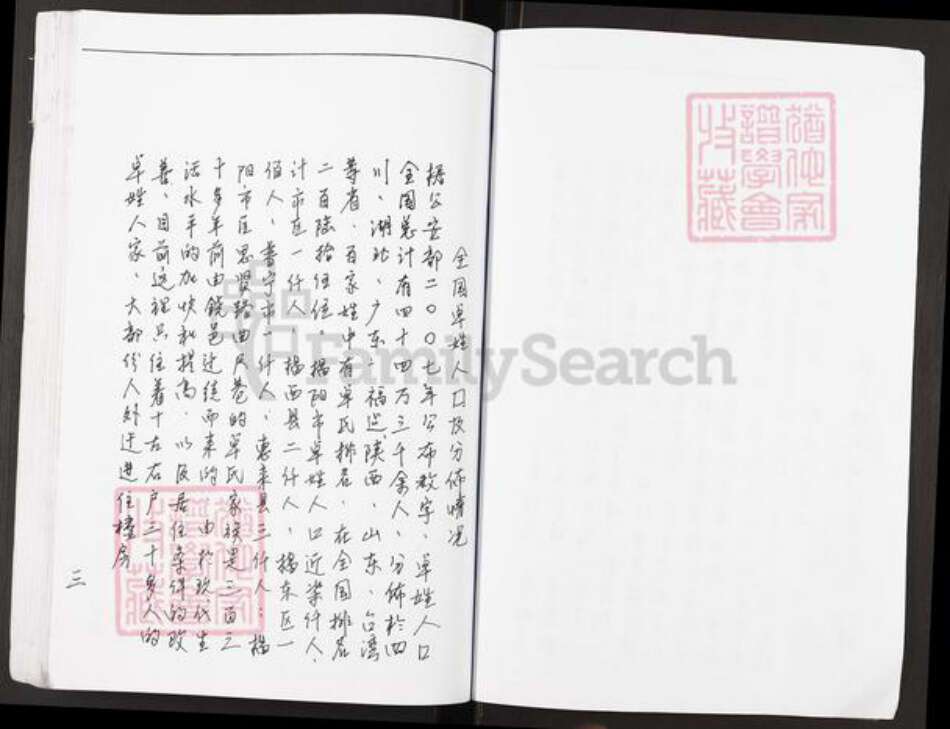 全国卓姓人口及分佈情况
据公安部二〇〇七年公布数字、卓姓人口
全国总计有四十四万三千余人、分佈於四
川、湖北、广东、福建、陕西、山东、台湾
等省、百家姓中有卓氏排名、在全国排名
二百陆拾伍位、揭阳市卓姓人口近柒仟人、
计市区一仟人、揭西县二仟人、揭东区一
佰人、普宁市一仟人、惠来县三仟人；揭
阳市区思贤路曲尺巷的卓氏家族是三百三
十多年前由饒邑过继而来的、由於现代生
活水平的加快和提高、以及居住条件的改
善、目前这裡只住着十左右户三十多人的
卓姓人家、大部份人外迁进住楼房
三
FamilySearch
猶他家
譜學會
收藏
猶他家
譜學會
收藏